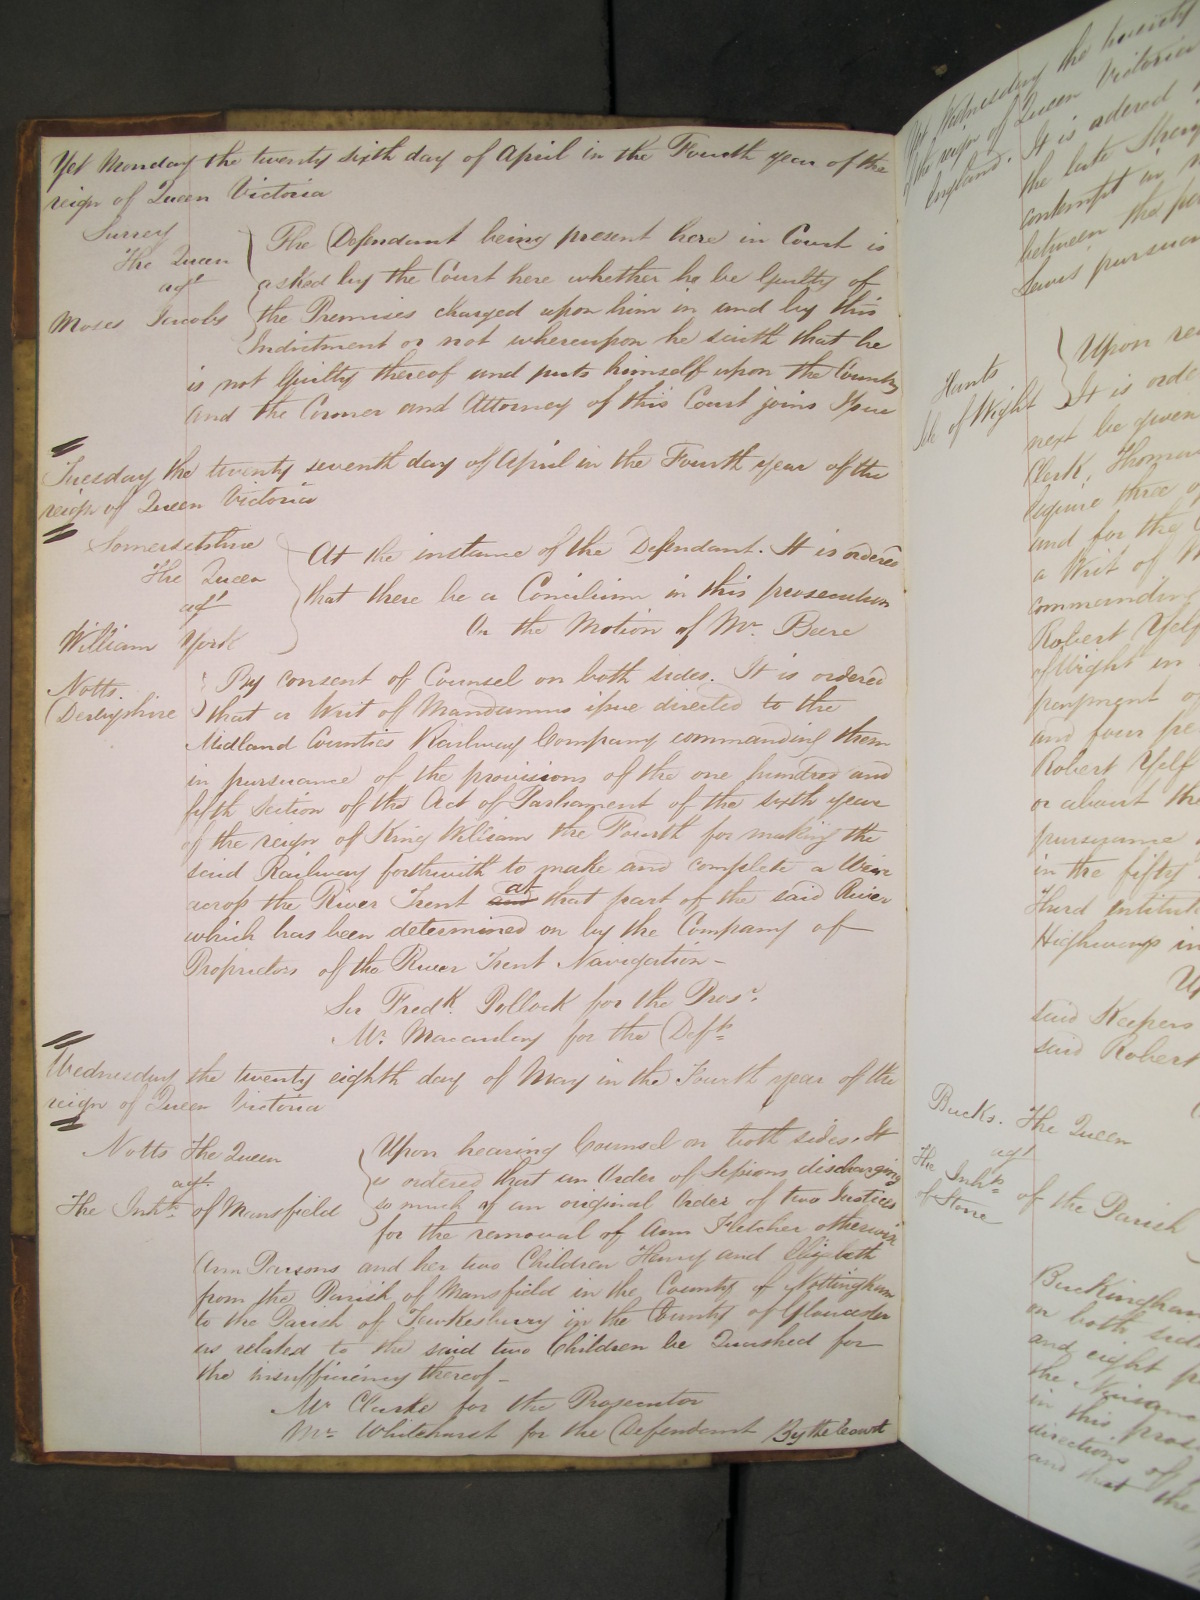 Yet Monday the twenty sixth day of April in the Fourth year of the
reign of Queen Victoria
Surrey
The Queen
agt
Moses Jacobs
The Defendant being present here in Court is
asked by the Court here whether he be Guilty of
the Premises charged upon him in and by this
Indictment or not whereupon he saith that he
is not Guilty thereof and puts himself upon the Country
and the Coroner and Attorney of this Court joins Issue
Tuesday the twenty seventh day of April in the Fourth year of the
reign of Queen Victoria
Somersetshire
The Queen
agt
William York
At the instance of the Defendant. It is ordered
that there be a Concilium in this prosecution
On the Motion of Mr. Bere
Notts
Derbyshire
By consent of Counsel on both sides. It is ordered
that a Writ of Mandamus issue directed to the
Midland Counties Railway Company commanding them
in pursuance of the provisions of the one hundred and
fifth section of the Act of Parliament of the sixth year
of the reign of King William the Fourth for making the
said Railway forthwith to make and complete a Weir
across the River Trent and at that part of the said River
which has been determined on by the Company of
Proprietors of the River Trent Navigation -
Sir Fredk. Pollock for the Prosr.
Mr. Macaulay for the Deft
Wednesday the twenty eighth day of May in the Fourth year of the
reign of Queen Victoria
Notts The Queen
agt
The Inhts of Mansfield
Upon hearing Counsel on both sides. It
is ordered that an Order of Sessions discharging
so much of an original Order of two Justices
for the removal of Ann Fletcher otherwise
Ann Parsons and her two Children Henry and Elizabeth
from the Parish of Mansfield in the County of Nottingham
to the Parish of Tewkesbury in the County of Gloucester
as related to the said two Children be Quashed for
the insufficiency thereof -
Mr Clarke for the Prosecutor
Mr Whitehurst for the Defendant By the Court
Yet Wednesday the twenty
of the reign of Queen Victoria
England. It is ordered
the late
contempt in
between the
Laws pursuan
Hants
Isle of Wight
Upon rea
It is orde
next be given
Clark, Thomas
Esquire three o
and for the
a Writ of
commanding
Robert Yelf
of Wight in
and four pe
Robert Yelf
or about the
pursuance
in the fifty
Third intitul
Highways in
said Keepers
said Robert
Bucks. The Queen
agt
The Inhts of the Parish
of Stone
Buckingham
on both side
and eight
the Nuisance
in this pros
directions of
and that the